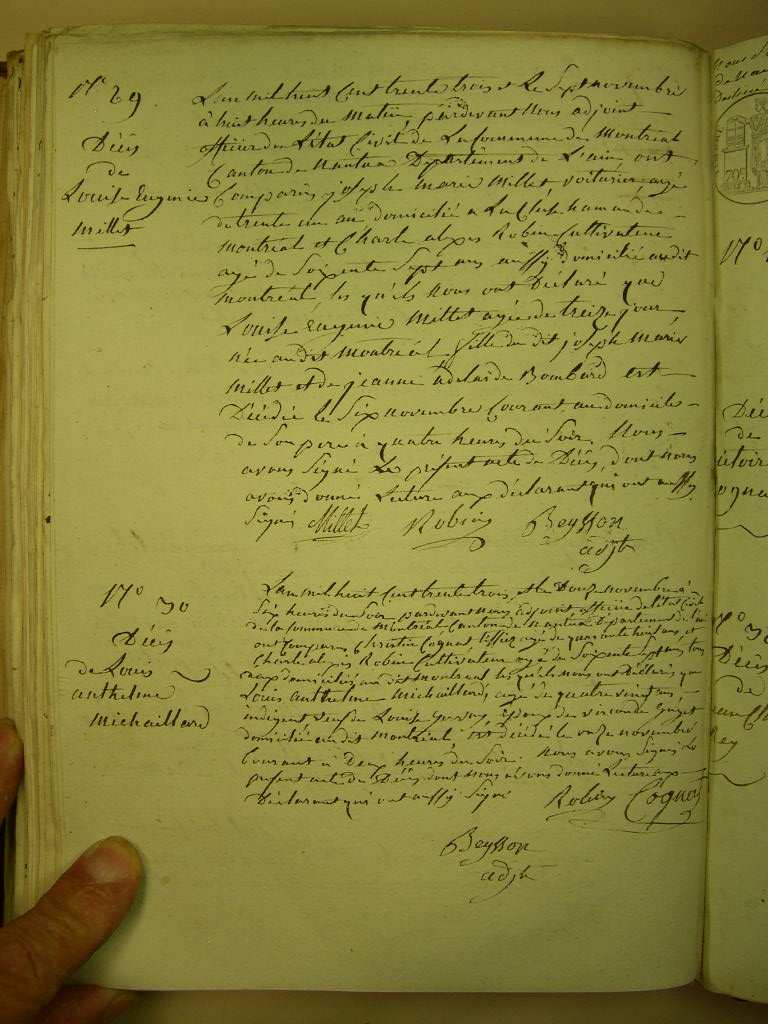 N° 29
Décès
de
Louise Eugenie
Millet
L'an mil huit Cent trente trois et Le Sept novembre
à huit heures du Matin, pardevant Nous adjoint
officier de L'état Civil de La Commune de Montréal
Canton de Nantua Département de L'ain, ont
Comparus joseph marie Millet, voiturier, agé
de trente un an domicilié a La Cluse hameau de
montréal et Charle alexis Robin Cultivateur
agé de Soixente Sept ans aussy domicilié audit
montréal, les quéls nous ont Déclaré que
Louise Eugenie Millet agée de treize jour,
née audit montréal fille du dit joseph Marie
Millet et de jeanne adelaide Bombard est
Décédée le Six novembre Courant, au domicile
de Son pere à quatre heures du Soir. Nous
avons Signé Le présent acte de Décès, dont nous
avons donné Lecture aux déclarant qui ont aussy
Signé Millet Robin Beysson
adjt
N° 30
Décès
de Louis
anthelme
michaillard
L'an mil huit Cent trente trois, et le Douze novembre à
Six heures du Soir, pardevant nous adjoint officier de l'état Civil
de la Commune de Montréal Canton de Nantua Département de l'ain
ont Comparus Christin Cognat agé de quarante huit ans, et
Charle alexis Robin Cultivateur agé de Soixente Sept ans, tous
Deux domiciliés au dit Montréal les quéls nous ont Déclarés, que
Louis Anthelme Michaillard, agé de quatre vingt ans,
indigent veuf de Louise
domicilié audit Montréal est décédé le onze novembre
Courant à Deux heures du Soir. Nous avons Signés Le
présent acte de Décès dont Nous avons donné Lecture aux
Déclarant qui ont aussy Signé Robin Cognat
Beysson
adjt
N°
Décè
de
N° 30
Décès
de